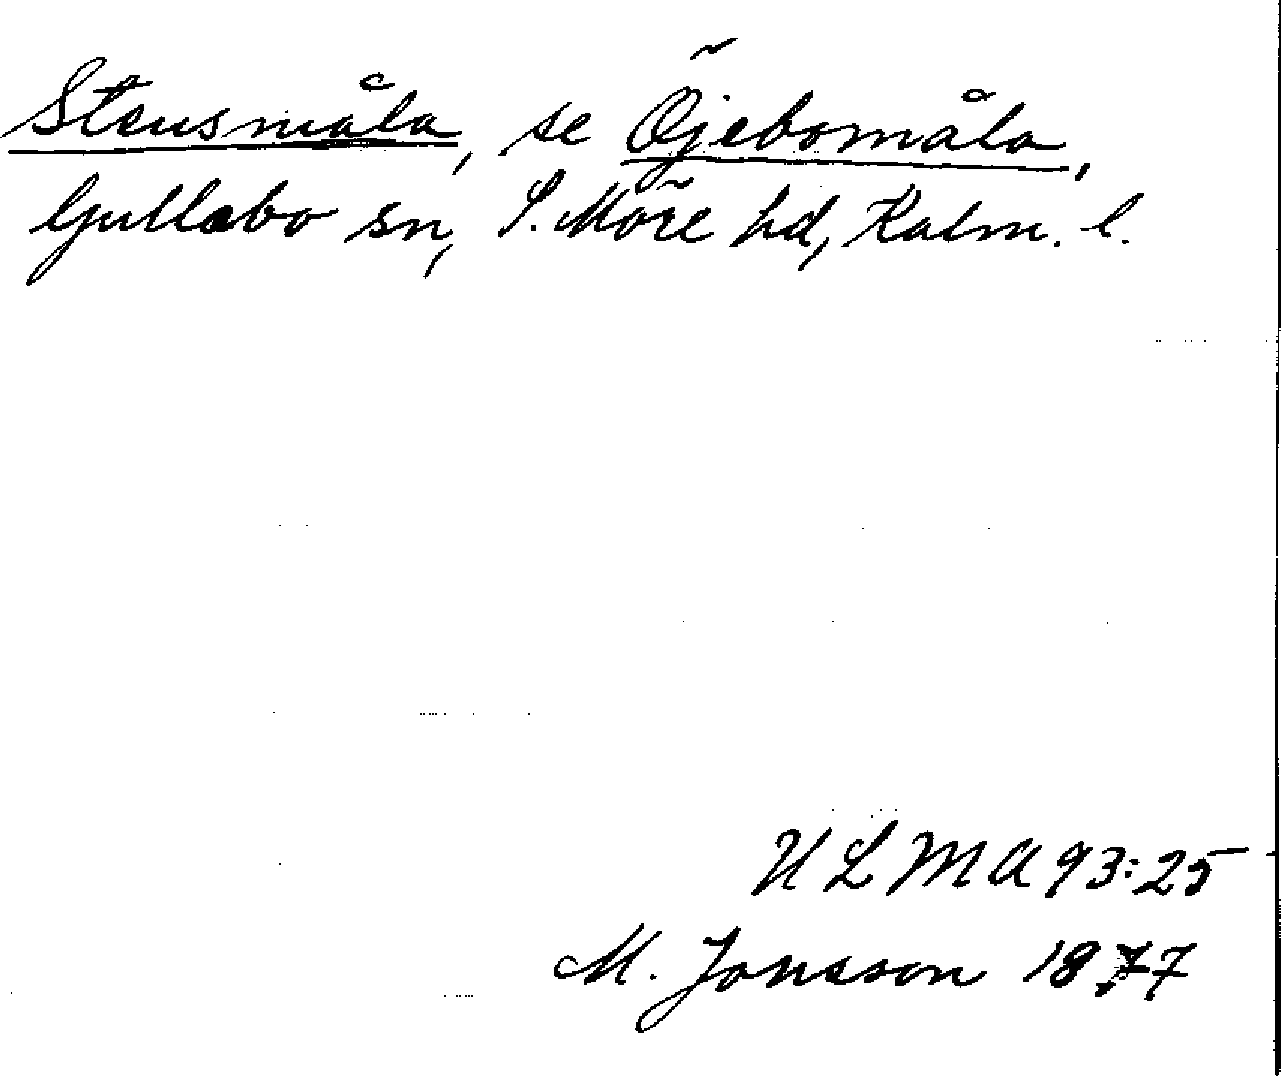 Stensmåla, se Öjebomåla,
Gullabo sn, S. Möre hd, Kalm. l.
ULMA 93:25
M. Jonsson 1877